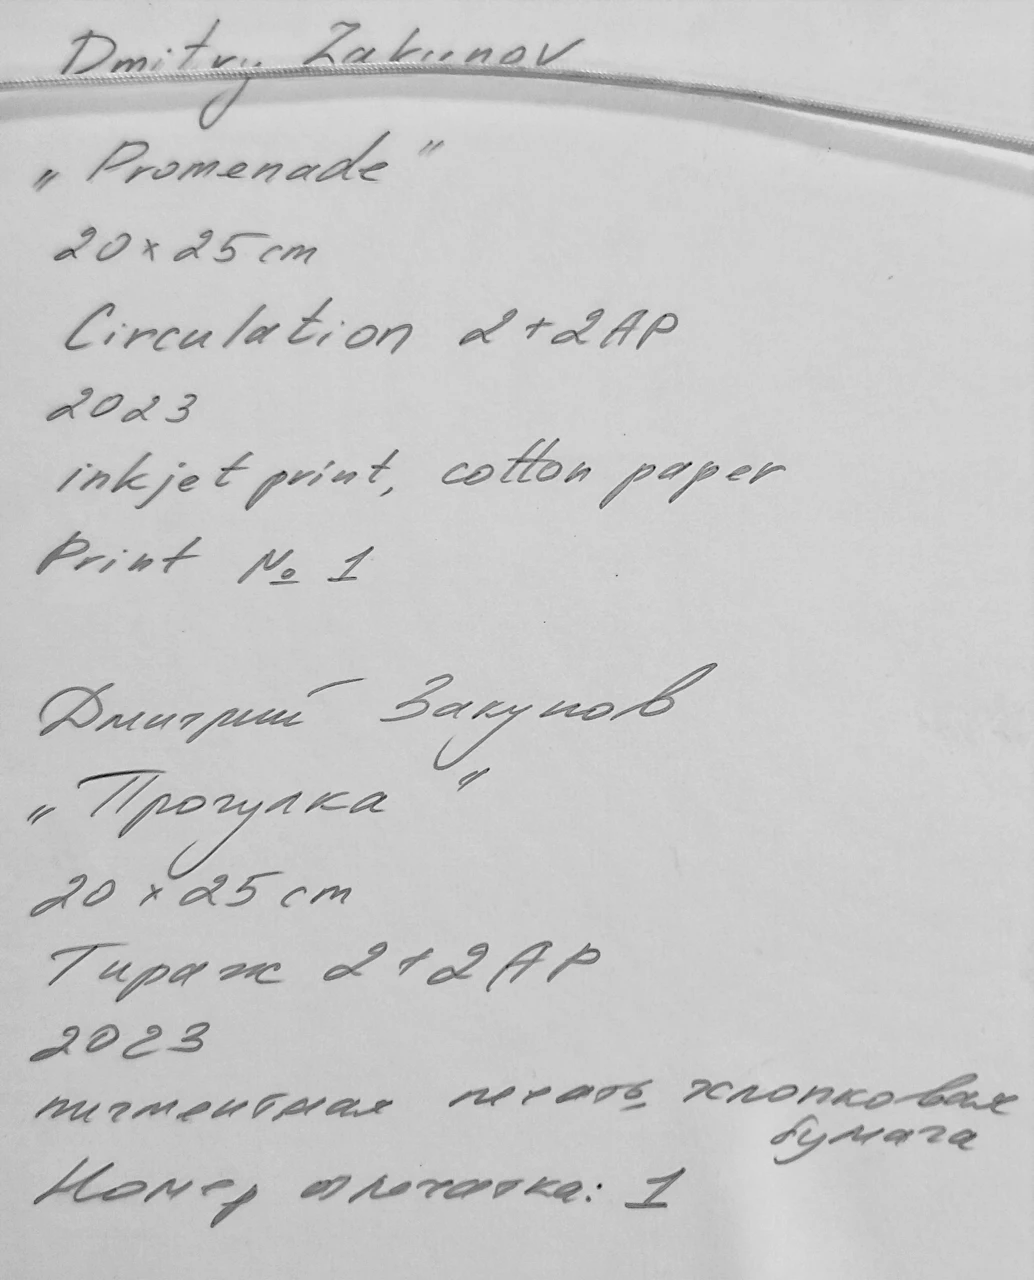 Dmitry Zakunov
„Promenade"
20 x 25 cm
Circulation 2 + 2 AP
2023
inkjet print, cotton paper
Print № 1
Дмитрий Закунов
„Прогулка"
20 x 25 cm
Тираж 2 + 2 AP
2023
пигментная печать, хлопковая
бумага
Номер отпечатка: 1